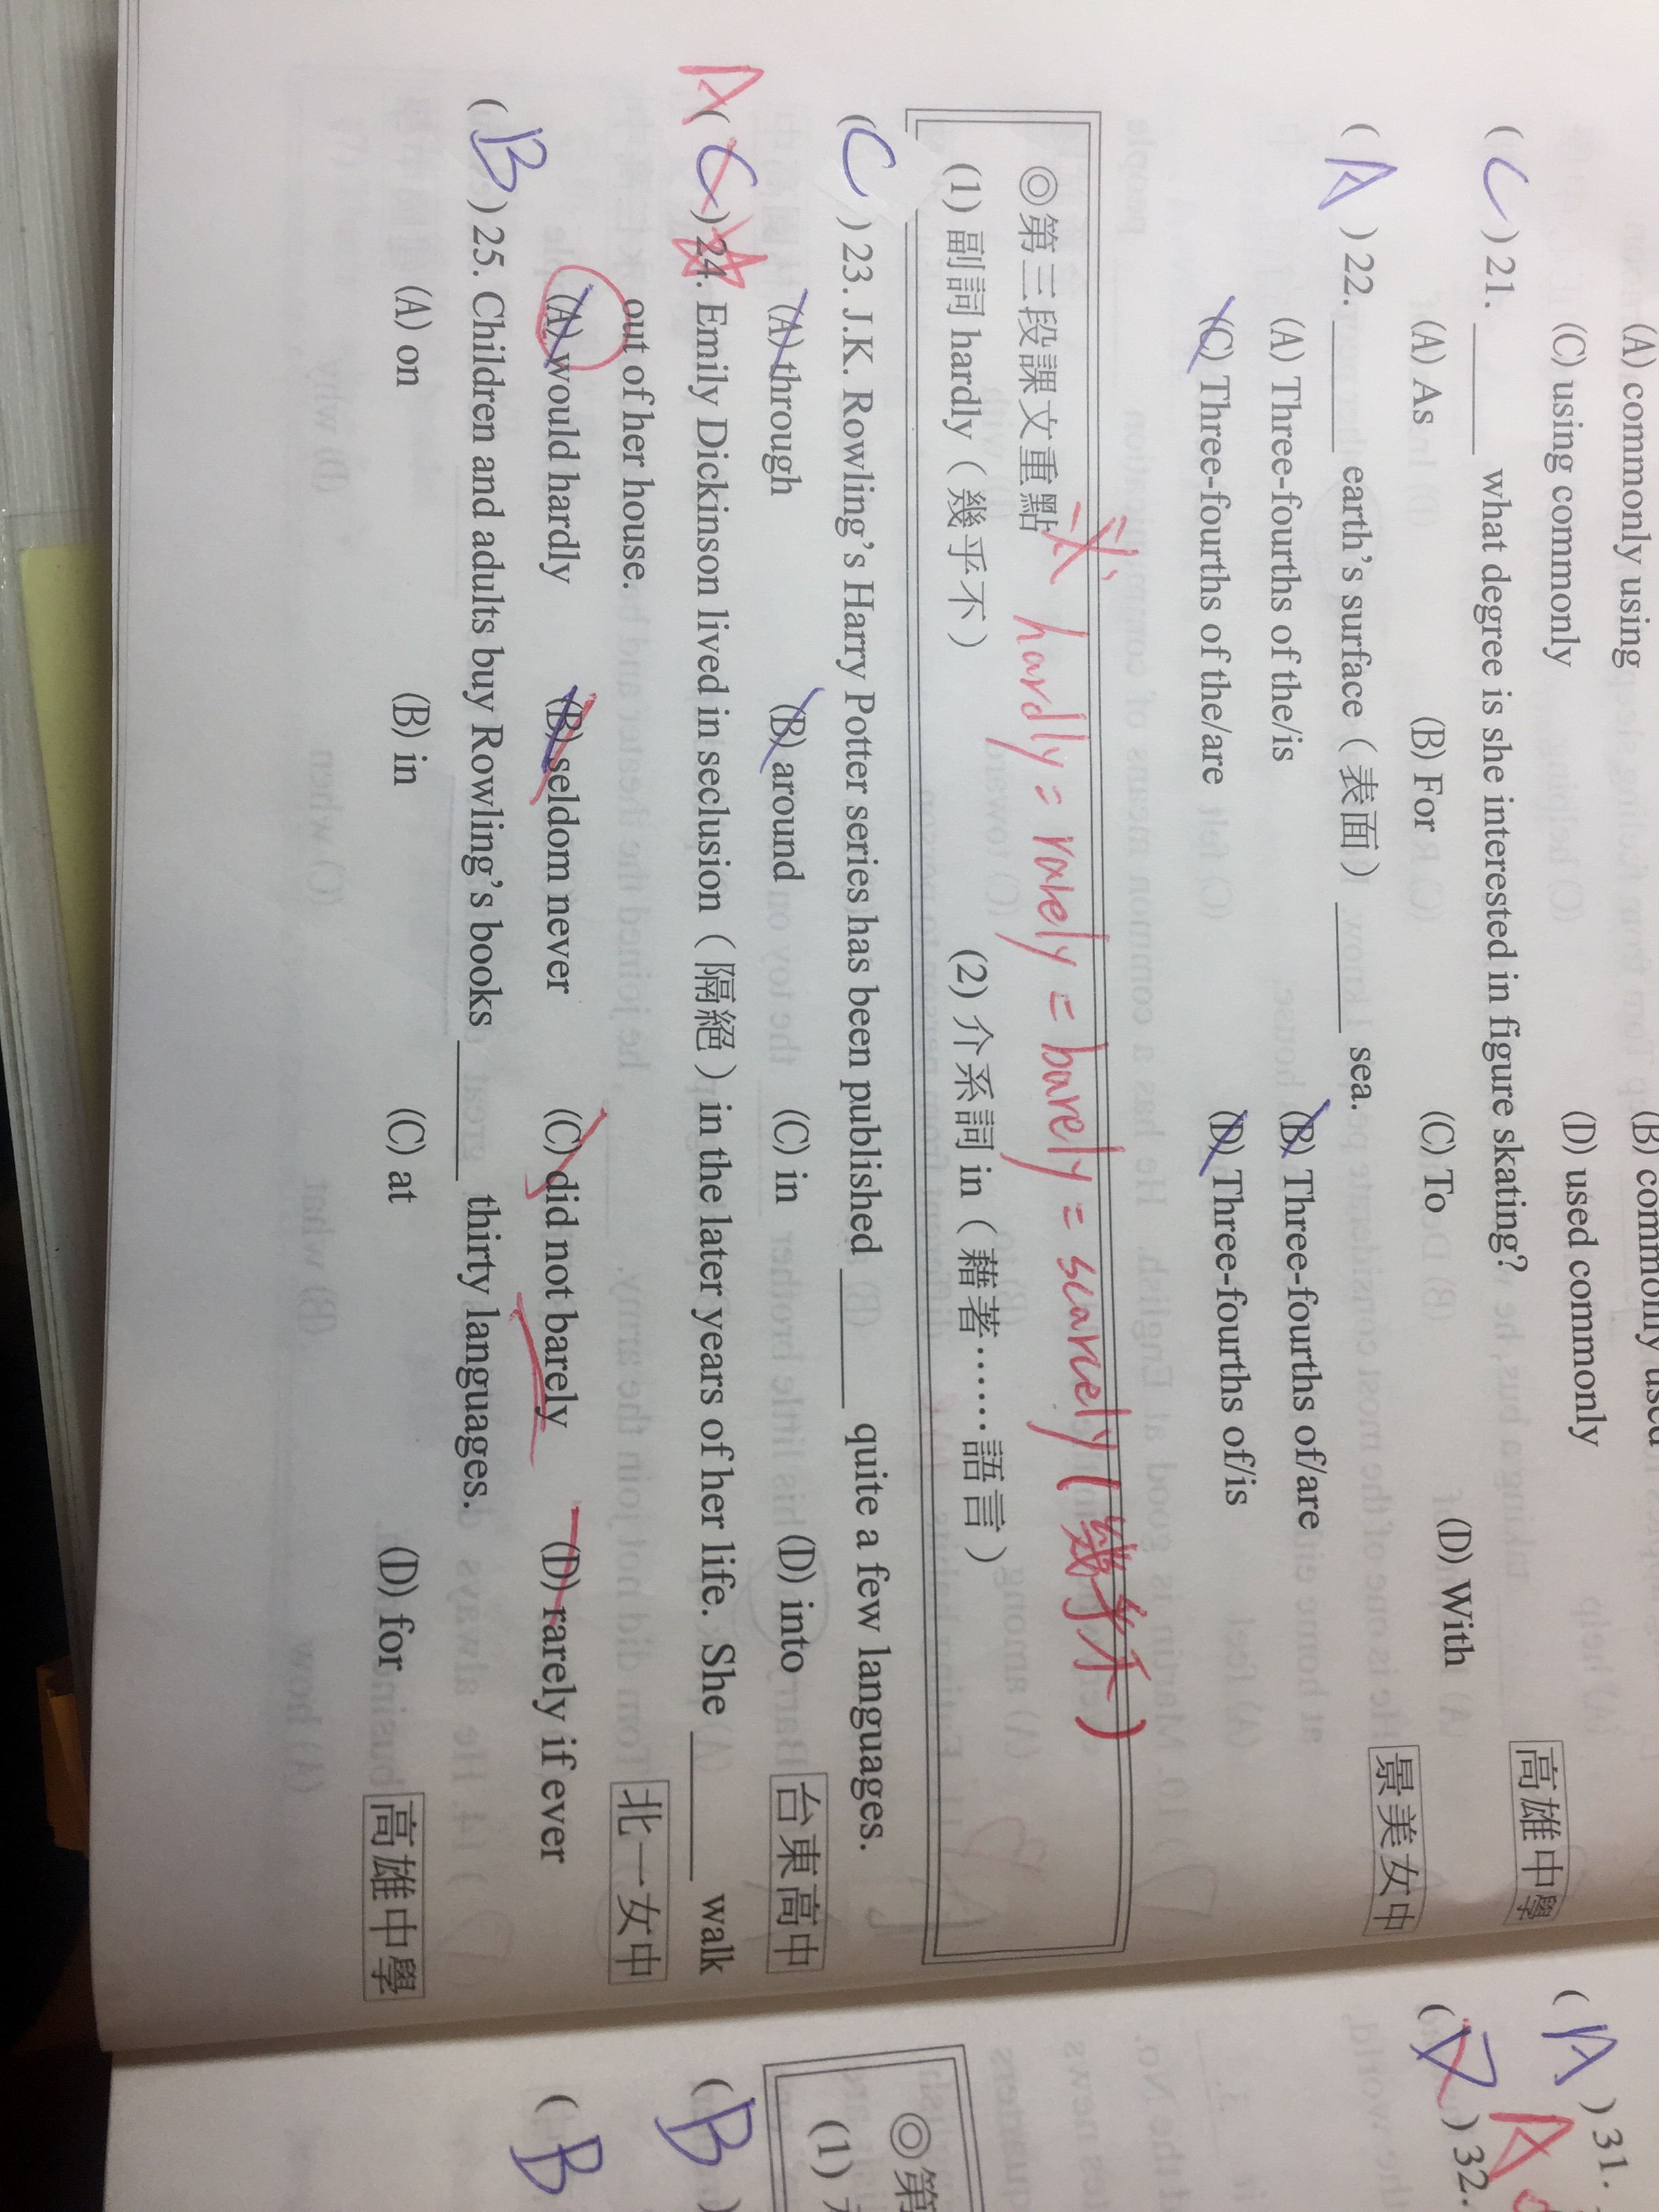 (A) commonly using (B) commonly used
(C) using commonly (D) used commonly
( C ) 21. ______ what degree is she interested in figure skating? 高雄中學
(A) As (B) For (C) To (D) With
( A ) 22. ______ earth's surface（表面）______ sea. 景美女中
(A) Three-fourths of the/is (B) Three-fourths of/are
(C) Three-fourths of the/are (D) Three-fourths of/is
hardly = rarely = barely = scarcely (幾乎不)
◎第三段課文重點
(1) 副詞 hardly（幾乎不） (2) 介系詞 in（藉著……語言）
( C ) 23. J.K. Rowling's Harry Potter series has been published ______ quite a few languages.
(A) through (B) around (C) in (D) into 台東高中
A ( C ) 24. Emily Dickinson lived in seclusion（隔絕）in the later years of her life. She ______ walk
out of her house. 北一女中
(A) would hardly (B) seldom never (C) did not barely (D) rarely if ever
( B ) 25. Children and adults buy Rowling's books ______ thirty languages.
(A) on (B) in (C) at (D) for 高雄中學
( A ) 31.
( ) 32. A
◎第
(1)
( B )
( B